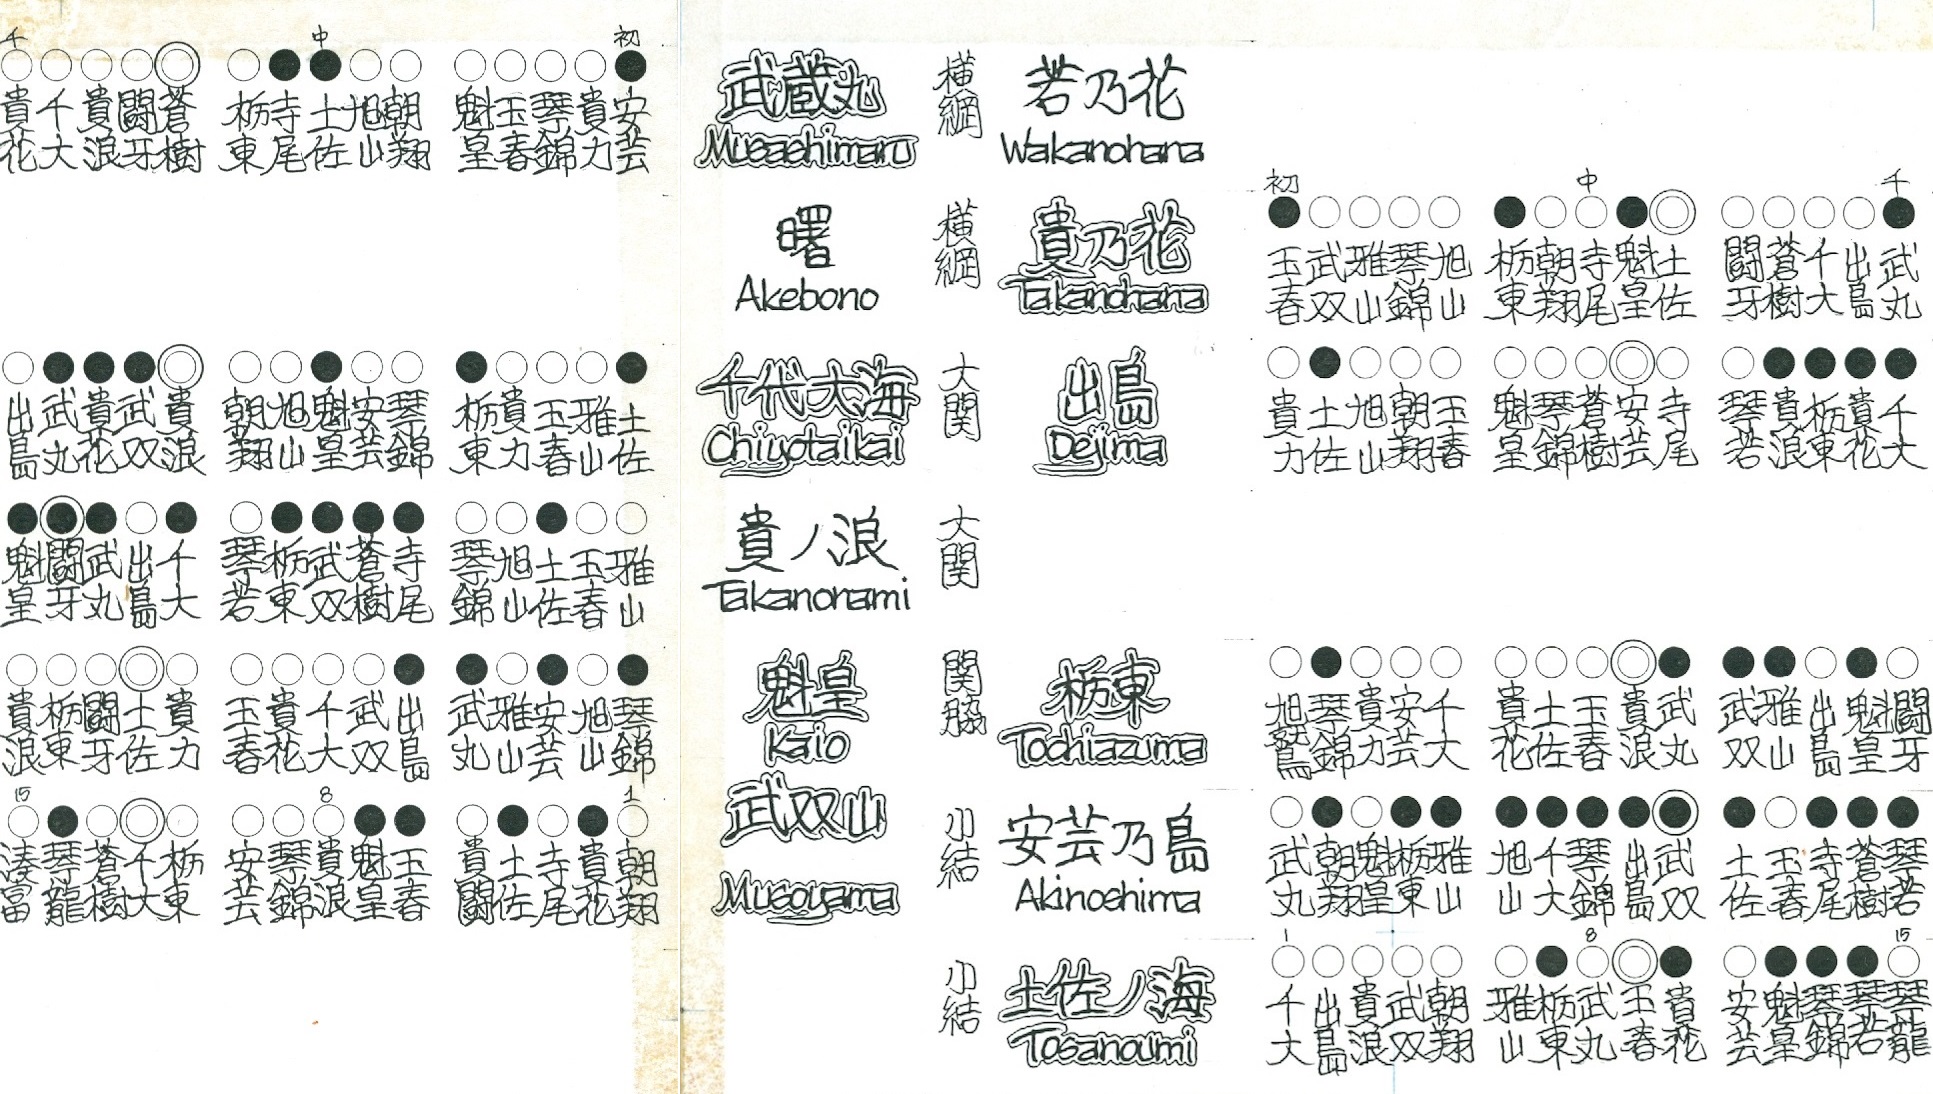 千 中 初
貴花 千大 貴浪 闘牙 蒼樹 栃東 寺尾 土佐 旭山 朝翔 魁皇 玉春 琴錦 貴力 安芸
武蔵丸
Musashimaru
横綱
若乃花
Wakanohana
曙
Akebono
横綱
貴乃花
Takanohana
初 中 千
玉春 武双 雅山 琴錦 旭山 栃東 朝翔 寺尾 魁皇 土佐 闘牙 蒼樹 千大 出島 武丸
出島 武丸 貴花 武双 貴浪 朝翔 旭山 魁皇 安芸 琴錦 栃東 貴力 玉春 雅山 土佐
千代大海
Chiyotaikai
大関
出島
Dejima
貴力 土佐 旭山 朝翔 玉春 魁皇 琴錦 蒼樹 安芸 寺尾 琴若 貴浪 栃東 貴花 千大
魁皇 闘牙 武丸 出島 千大 琴若 栃東 武双 蒼樹 寺尾 琴錦 旭山 土佐 玉春 雅山
貴ノ浪
Takanonami
大関
貴浪 栃東 闘牙 土佐 貴力 玉春 貴花 千大 武双 出島 武丸 雅山 安芸 旭山 琴錦
魁皇
Kaio
関脇
栃東
Tochiazuma
旭鷲 琴錦 貴力 安芸 千大 貴花 土佐 玉春 貴浪 武丸 武双 雅山 出島 魁皇 闘牙
15 8 1
湊富 琴龍 蒼樹 千大 栃東 安芸 琴錦 貴浪 魁皇 玉春 貴闘 土佐 寺尾 貴花 朝翔
武双山
Musoyama
小結
安芸乃島
Akinoshima
武丸 朝翔 魁皇 栃東 雅山 旭山 千大 琴錦 出島 武双 土佐 玉春 寺尾 蒼樹 琴若
小結
土佐ノ海
Tosanoumi
1 8 15
千大 出島 貴浪 武双 朝翔 雅山 栃東 武丸 玉春 貴花 安芸 魁皇 琴錦 琴若 琴龍